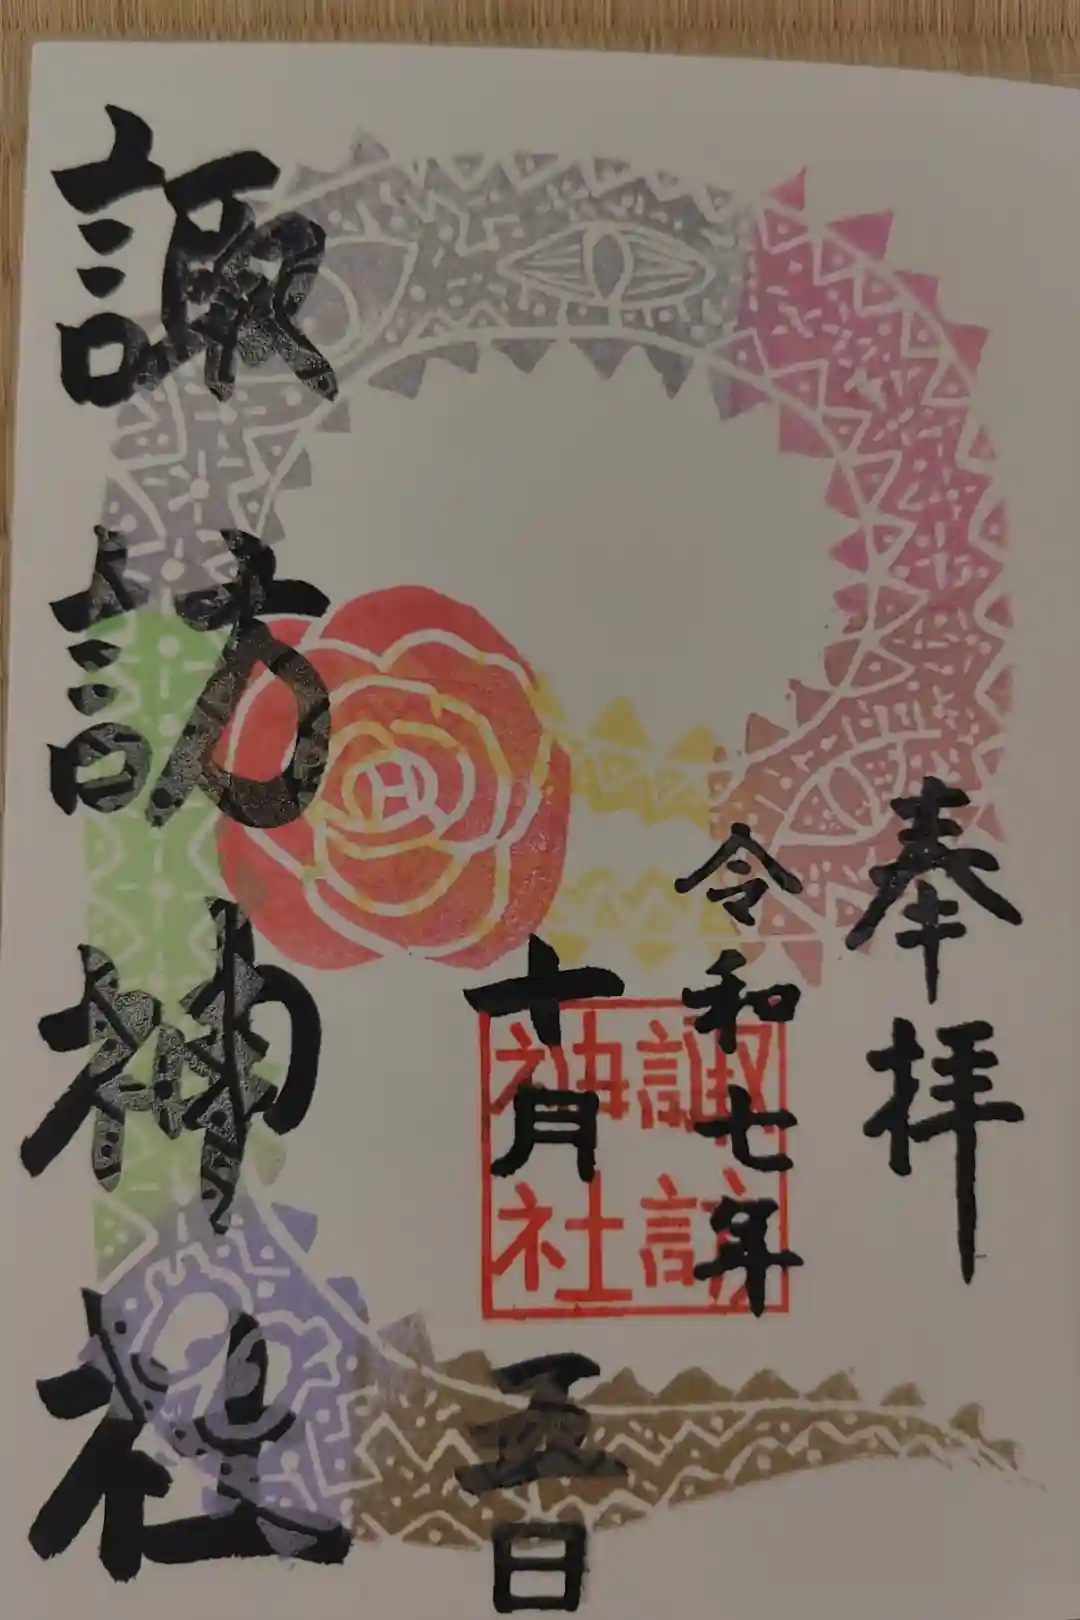 奉拝
令和七年
十月五日
諏訪神社
諏訪
神社